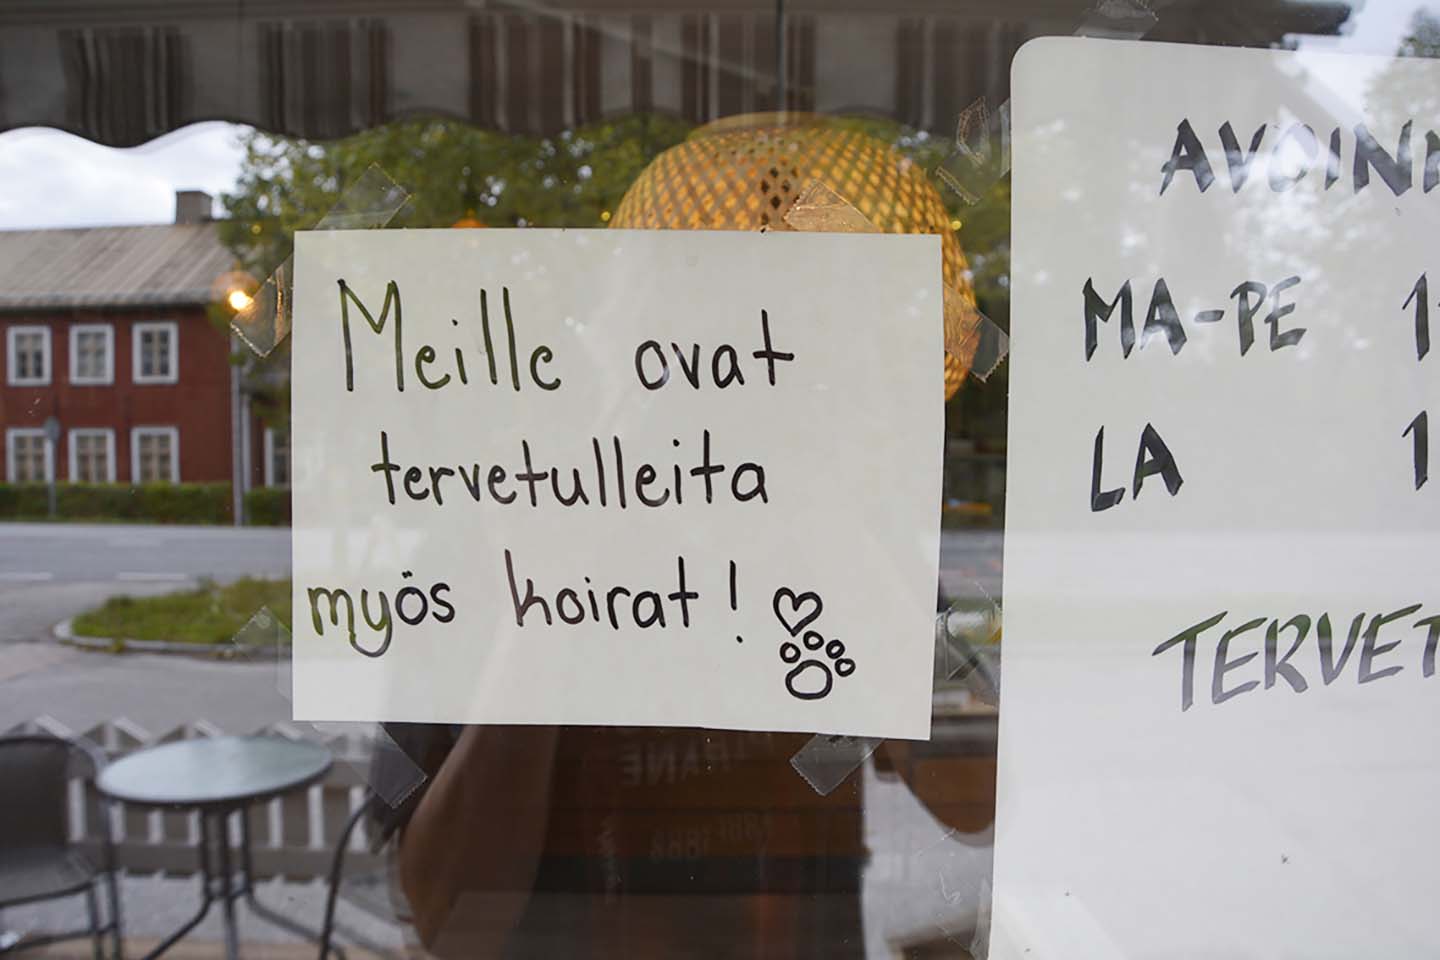 Meille ovat
tervetulleita
myös koirat!
AVOIN
MA-PE
LA
TERVET